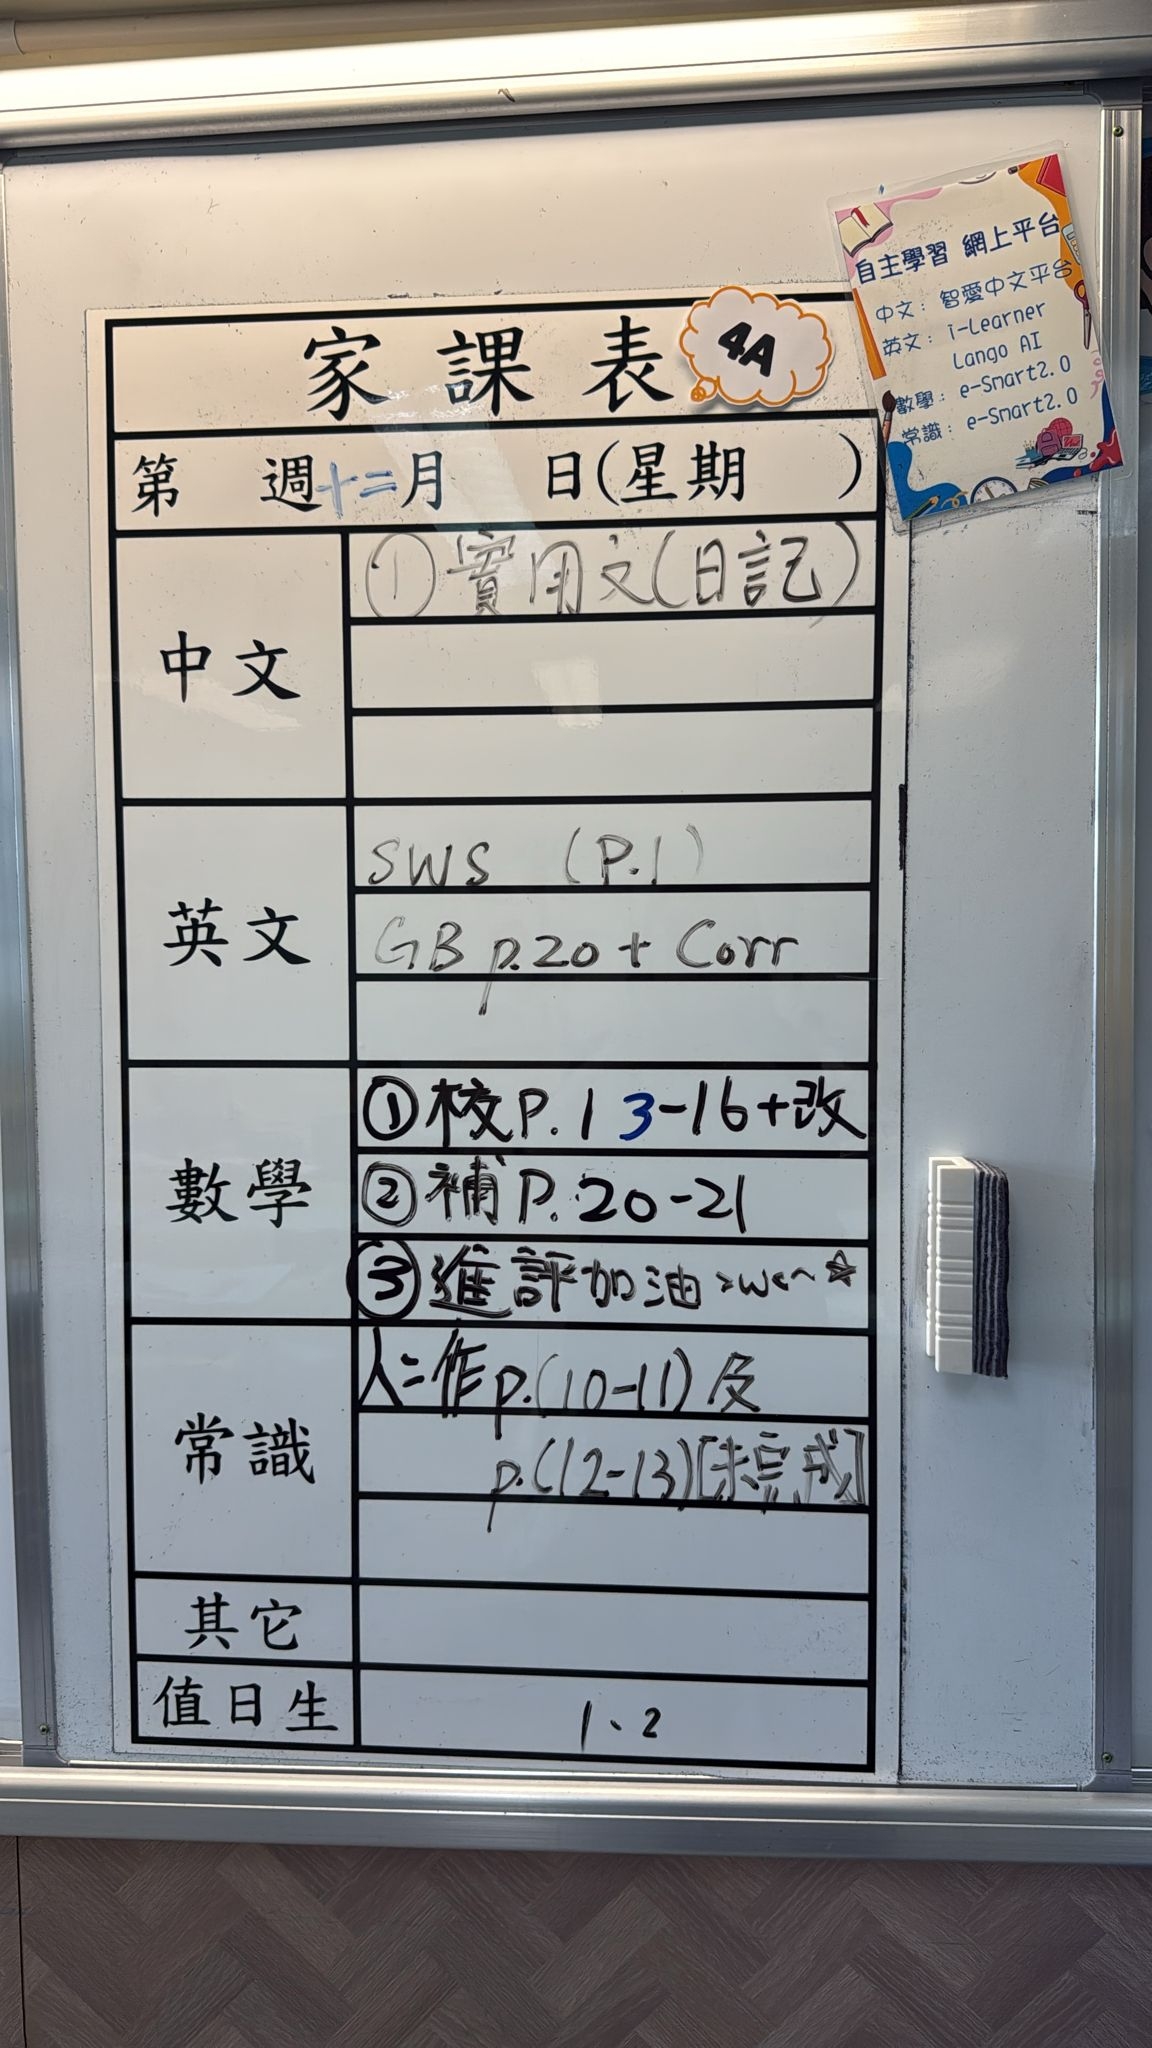 自主學習 網上平台
中文：智愛中文平台
英文：i-Learner
Lango AI
數學：e-Smart2.0
常識：e-Smart2.0
家課表 4A
第 週十二月 日(星期 )
中文
①實用文(日記)
英文
SWS (P.1)
GB p.20 + Corr
數學
①校P.13-16+改
②補P.20-21
③進評加油 >w<~☆
常識
人二作p.(10-11)及
p.(12-13)[未完成]
其它
值日生
1、2